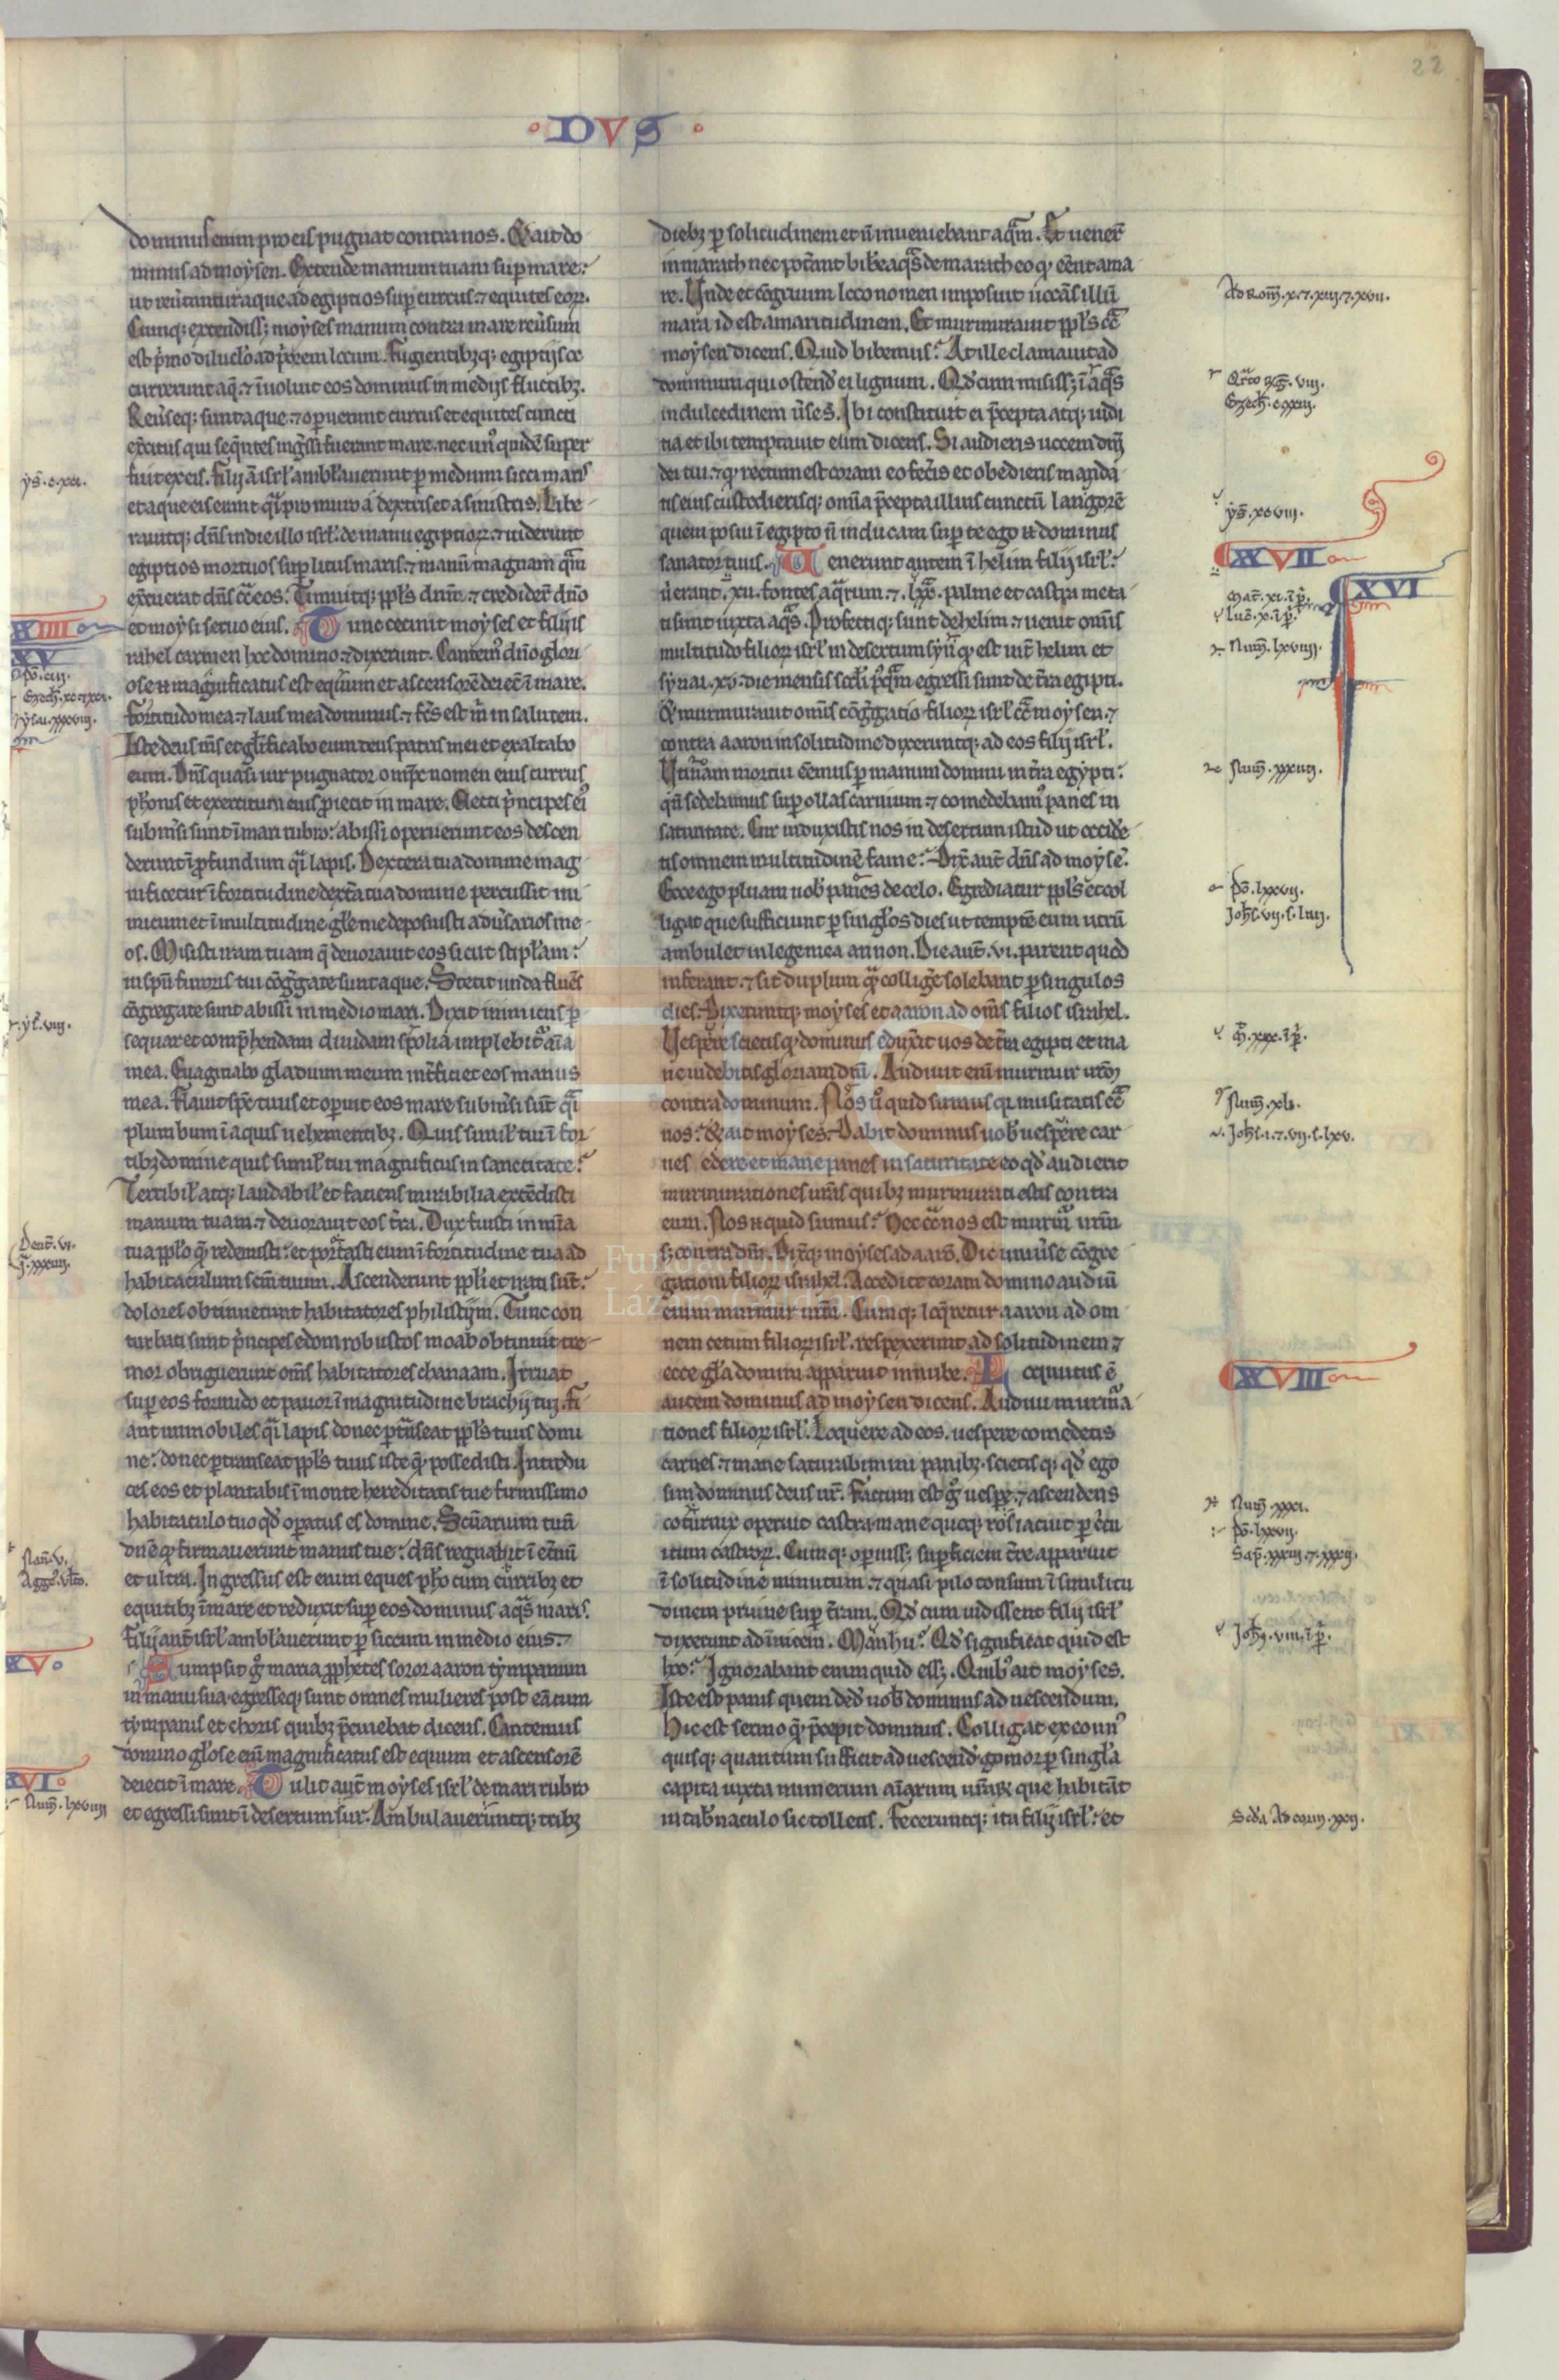 22
· DVS ·
dominus enim pro eis pugnat contra nos. Et ait do
minus ad moysen. Extende manum tuam sup mare:
ut reūtantur aque ad egiptios sup currus ⁊ equites eoꝝ.
Cumq; extendiss; moyses manum contra mare reūsum
est p̄mo diluclo ad p̄orem locum. fugientibꝫq; egiptijs oc
currerunt aq̄. ⁊ īuoluit eos dominus in medijs fluctibꝫ.
Reūseq; sunt aque ⁊ opuerunt currus et equites cuncti
ex̄citus qui seq̄ntes ingressi fuerant mare. nec unꝰ quidē super
fuit ex eis. filij ā isrl' amblauerunt p medium sicci maris
et aque eis erant q̄i pro muro a dextris et a sinistris. Libe
rauitq; dn̄s in die illo isrl' de manu egiptioꝝ. ⁊ uiderunt
egiptios mortuos sup litus maris. ⁊ manū magnam q̄m
ex̄cuerat dn̄s cͣ eos. Timuitq; ppl's dnm̄. ⁊ credider̄ dn̄o
et moysi seruo eius. Tunc cecinit moyses et filij is
rahel carmen hoc domino. ⁊ dixerunt. Cantemꝰ dn̄o glori
ose n̄ magnificatus est equum et ascensorē deiec̄ ī mare.
fortitudo mea ⁊ laus mea dominus. ⁊ fcs̄ est m̄ in salutem.
Iste deus m̄s et gl'ificabo eum deus patris mei et exaltabo
eum. Dn̄s quasi uir pugnator omps̄ nomen eius currus
ph'onis et exercitum eius proiecit in mare. Electi p̄ncipes eiꝰ
submsi sunt ī mari rubro: abissi operuerunt eos descen
derunt ī profundum q̄i lapis. Dextera tua domine mag
nificetur ī fortitudine dext̄a tua domine percussit ini
micum et ī multitudine gl'e tue deposuisti aduūsarios me
os. Misisti iram tuam q̄ deuorauit eos sicut stipl'am:
in spū furoris tui cōg̊gate sunt aque. Stetit unda fluēs
cōgregate sunt abissi in medio mari. Dixit inimicus p
sequar et comp̄hendam diuidam spolia implebit̄ aīa
mea. Euaginabo gladium meum int̄ficiet eos manus
mea. flauit spc̄ tuus et opuit eos mare submsi sūt q̄i
plumbum ī aquis uehementibꝫ. Quis simil' tui ī for
tibꝫ domine quis simil' tui magnificus in sanctitate:
Terribil' atq; laudabil' et faciens mirabilia extēdisti
manum tuam. ⁊ deuorauit eos t̄ra. Dux fuisti in mīa
tua pplo q̄ redemisti: et portasti eum ī fortitudine tua ad
habitaculum scm̄ tuum. Ascenderunt ppl'i et irati sūt:
dolores obtinuerunt habitatores philistijm. Tunc con
turbati sunt p̄ncipes edom robustos moab obtinuit tre
mor obriguerunt oms̄ habitatores chanaam. Irruat
sup eos formido et pauor ī magnitudine brachij tui. fi
ant immobiles q̄i lapis donec pt̄nseat ppl's tuus domi
ne: donec ptranseat ppl's tuus iste q̄ possedisti. Introdu
ces eos et plantabis ī monte hereditatis tue firmissimo
habitaculo tuo qd' opatus es domine. Scūarium tuū
dn̄e q̄ firmauerunt manus tue: dn̄s regnabit ī et̄nū
et ultra. Ingressus est enim eques pho cum curribꝫ et
equitibꝫ ī mare et reduxit sup eos dominus aq̄s maris.
filij aut̄ isrl' amblauerunt p siccum in medio eius.
Sumpsit g̊ maria pphetes soror aaron tympanum
in manu sua. egresseq; sunt omnes mulieres post eā cum
tympanis et choris quibꝫ p̄cinebat dicens. Cantemus
domino gl'ose em̄ magnificatus est equum et ascensorē
deiecit ī mare. Tulit aut̄ moyses isrl' de mari rubro
et egressi sunt ī desertum sur. Ambulaueruntq; tribꝫ
diebꝫ p solitudinem et n̄ inueniebant aq̄m. Et uener̄
in marath nec pot̄ant bibe aq̄s de marath eo q' ēent ama
re. Unde et cōgruum loco nomen imposuit uocās illū
mara id est amaritudinem. Et murmurauit ppl's cͣ
moysen dicens. Quid bibemus: At ille clamauit ad
dominum qui ostend' ei lignum. Qd' cum misiss; ī aq̄s
in dulcedinem ūse s̄. Ibi constituit ei p̄cepta atq; iudi
tia et ibi temptauit eum dicens. Si audieris uocem dnī
dei tui. ⁊ q' rectum est coram eo fec̄is et obedieris manda
tis eius custodierisq; omīa p̄cepta illius cunctū langorē
quem posui ī egipto n̄ inducam sup te ego n̄ dominus
sanator tuus. Uenerunt autem ī helim filij isrl':
ūerant .xii. fontes aq̄rum. ⁊ .lxx. palme et castra meta
ti sunt iuxta aq̄s. Profectiq; sunt de helim. ⁊ uenit omīs
multitudo filioꝝ isrl' in desertum syn q' est int̄ helim et
synai .xv. die mensis scd'i p̄q̄m egressi sunt de t̄ra egipti.
Et murmurauit omīs cōg̊gatio filioꝝ isrl' cͣ moysen. ⁊
contra aaron in solitudine dixeruntq; ad eos filij isrl'.
Utinam mortui ēemus p manum domini in t̄ra egypti:
qn̄ sedebamus sup ollas carnium ⁊ comedebamꝰ panes in
saturitate. Cur induxistis nos in desertum istud ut occide
tis omnem multitudinē fame: Dix̄ aut̄ dn̄s ad moysē.
Ecce ego pluam uob' panes de celo. Egrediatur ppl's et col
ligat que sufficiunt p singl'os dies ut temptē eum utrū
ambulet in lege mea an non. Die aut̄ .vi. parent quod
inferant. ⁊ sit duplum q̄ collig̊e solebant p singulos
dies. Dixeruntq; moyses et aaron ad oms̄ filios israhel.
Uespere scietis q' dominus eduxit uos de t̄ra egipti et ma
ne uidebitis gloriam dnī. Audiuit enī murmur ur̄m
contra dominum. Nos ū quid sumus q' musitatis cͣ
nos: Et ait moyses. Dabit dominus uob' uespere car
nes edere et mane panes in saturitate eo qd' audierit
murmurationes ur̄as quibꝫ murmurati estis contra
eum. Nos n̄ quid sumus: Nec cͣ nos est murmur ur̄m
s; contra dnm̄. Dixitq; moyses ad aarō. Dic uniūse cōgre
gationi filioꝝ israhel. Accedite coram domino audiū
enim murmur ur̄m. Cumq; loq̄retur aaron ad om
nem cetum filioꝝ isrl'. respexerunt ad solitudinem ⁊
ecce gl'a domini apparuit in nube. Locutus ē
autem dominus ad moysen dicens. Audiui murmura
tiones filioꝝ isrl'. Loquere ad eos. uespere comedetis
carnes. ⁊ mane saturabimini panibꝫ. scietisq; qd' ego
sum dominus deus ur̄. Factum est g̊ uespe. ⁊ ascendens
coturnix operuit castra. mane quoq; ros iacuit p c̄cu
itum castroꝝ. Cumq; opuiss; supficiem t̄re apparuit
ī solitudine minutum. ⁊ quasi pilo tonsum ī similitu
dinem pruine sup t̄ram. Qd' cum uidissent filij isrl'
dixerunt ad īuicem. Manhu: Qd' significat quid est
hoc: Ignorabant enim quid ess;. Quibꝰ ait moyses.
Iste est panis quem ded' uob' dominus ad uescendum.
Hic est sermo q̄ p̄cepit dominus. Colligat ex eo un'
quisq; quantum sufficit ad uescend'. gomor p singl'a
capita iuxta numerum aīarum ur̄arꝝ que habitāt
in tab'naculo sic tolletis. feceruntq; ita filij isrl': et
ys̄. c. xxi.
XIIII
XV
ps̄. ciij.
Ezech'. xc. ⁊ xxi.
ysa. xxxviij.
yl'. viij.
Deut̄. vi.
j. xxxiij.
Nau. v.
Agge. ultō.
XV
XVI
Num̄. lxviiij
Ad Rom̄. x. ⁊ xiij. ⁊ xvii.
Qr̄to rḡ. viij.
Ezech'. cxxiij.
ys̄. xcviii.
XVII
XVI
Mat̄. xi. ī p̄.
Luc̄. x. ī p̄.
Num̄. lxviiij.
Num̄. xxiiij.
ps̄. lxxvij.
Joh̄s. vij. s. liiij.
Num̄. xls.
Joh̄s. i. ⁊ vij. s. lxv.
XVIII
Num̄. xxxi.
ps̄. lxxvij.
Sap̄. xxiij. ⁊ xxxij.
Joh̄s. viij. ī p̄.
Scd'a Ad corin. xxij.
Fundación
Lázaro Galdiano